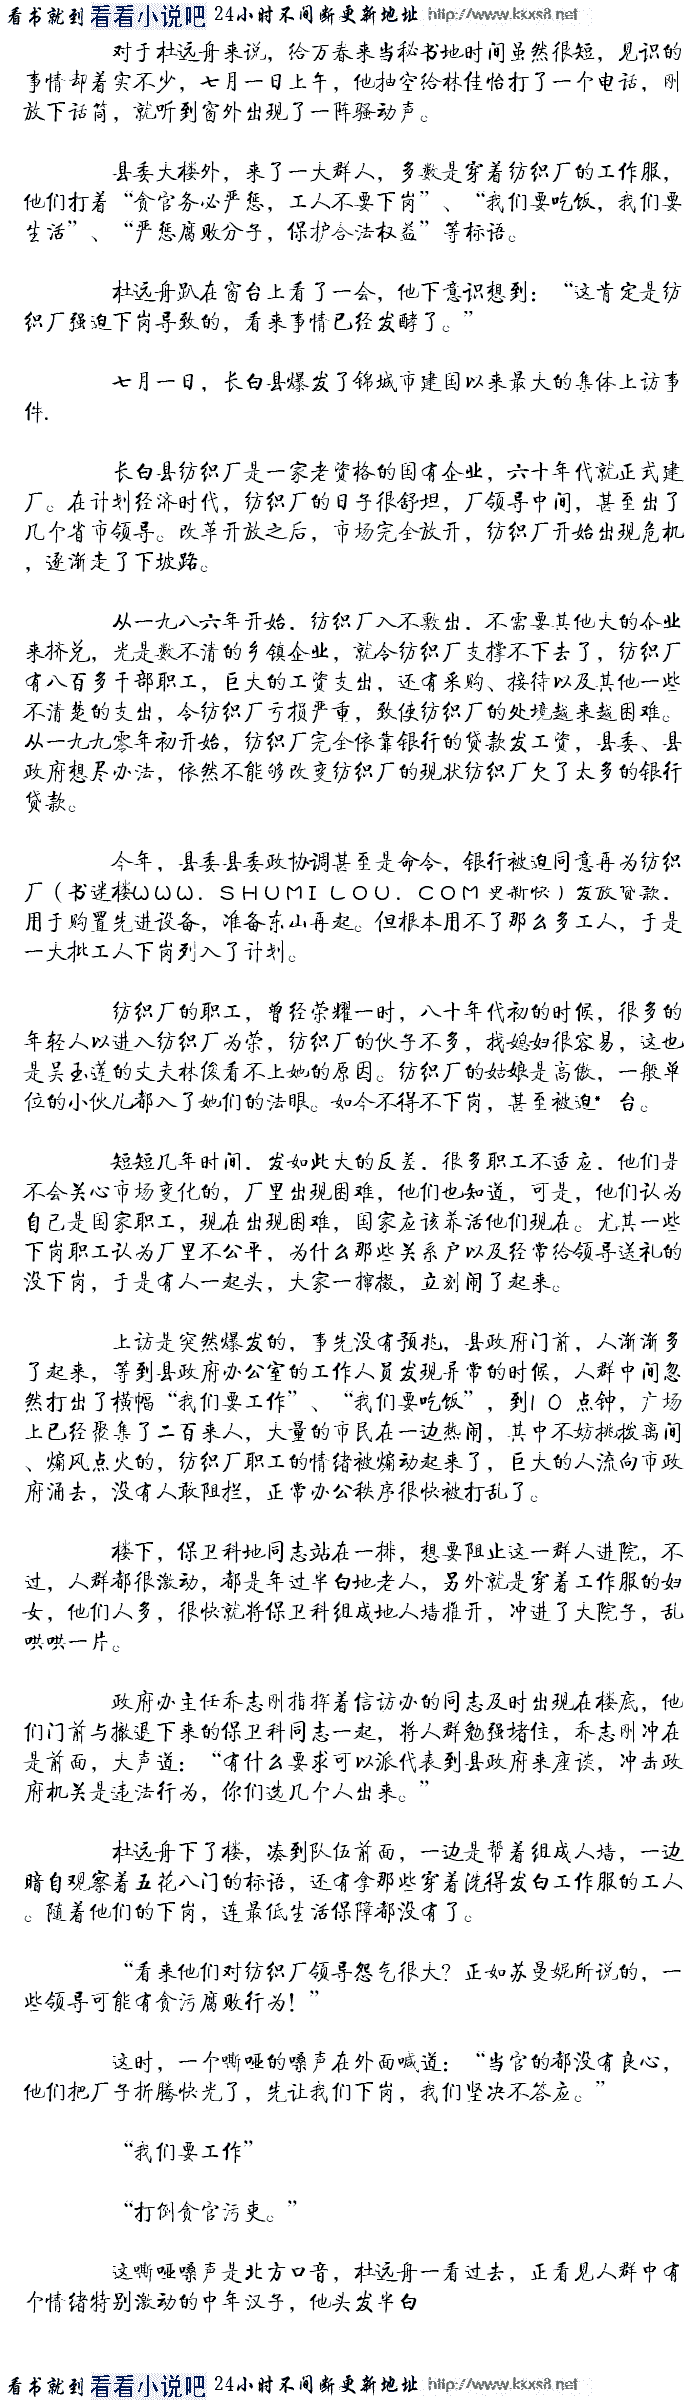 看书就到 看看小说吧 24小时不间断更新地址 http://www.kkxs8.net
对于杜远舟来说，给万春来当秘书地时间虽然很短，见识的
事情却着实不少，七月一日上午，他抽空给林佳怡打了一个电话，刚
放下话筒，就听到窗外出现了一阵骚动声。
县委大楼外，来了一大群人，多数是穿着纺织厂的工作服，
他们打着“贪官务必严惩，工人不要下岗”、“我们要吃饭，我们要
生活”、“严惩腐败分子，保护合法权益”等标语。
杜远舟趴在窗台上看了一会，他下意识想到：“这肯定是纺
织厂强迫下岗导致的，看来事情已经发酵了。”
七月一日，长白县爆发了锦城市建国以来最大的集体上访事
件.
长白县纺织厂是一家老资格的国有企业，六十年代就正式建
厂。在计划经济时代，纺织厂的日子很舒坦，厂领导中间，甚至出了
几个省市领导。改革开放之后，市场完全放开，纺织厂开始出现危机
，逐渐走了下坡路。
从一九八六年开始．纺织厂入不敷出．不需要其他大的企业
来挤兑，光是数不清的乡镇企业，就令纺织厂支撑不下去了，纺织厂
有八百多干部职工，巨大的工资支出，还有采购、接待以及其他一些
不清楚的支出，令纺织厂亏损严重，致使纺织厂的处境越来越困难。
从一九九零年初开始，纺织厂完全依靠银行的贷款发工资，县委、县
政府想尽办法，依然不能够改变纺织厂的现状纺织厂欠了太多的银行
贷款。
今年，县委县委政协调甚至是命令，银行被迫同意再为纺织
厂（书迷楼ＷＷＷ．ＳＨＵＭＩＬＯＵ．ＣＯＭ更新快）发放贷款．
用于购置先进设备，准备东山再起。但根本用不了那么多工人，于是
一大批工人下岗列入了计划。
纺织厂的职工，曾经荣耀一时，八十年代初的时候，很多的
年轻人以进入纺织厂为荣，纺织厂的伙子不多，找媳妇很容易，这也
是吴玉莲的丈夫林俊看不上她的原因。纺织厂的姑娘是高傲，一般单
位的小伙儿都入了她们的法眼。如今不得不下岗，甚至被迫* 台。
短短几年时间．发如此大的反差．很多职工不适应．他们是
不会关心市场变化的，厂里出现困难，他们也知道，可是，他们认为
自己是国家职工，现在出现困难，国家应该养活他们现在。尤其一些
下岗职工认为厂里不公平，为什么那些关系户以及经常给领导送礼的
没下岗，于是有人一起头，大家一撺掇，立刻闹了起来。
上访是突然爆发的，事先没有预兆，县政府门前，人渐渐多
了起来，等到县政府办公室的工作人员发现异常的时候，人群中间忽
然打出了横幅“我们要工作”、“我们要吃饭”，到１０点钟，广场
上已经聚集了二百来人，大量的市民在一边热闹，其中不妨挑拨离间
、煽风点火的，纺织厂职工的情绪被煽动起来了，巨大的人流向市政
府涌去，没有人敢阻拦，正常办公秩序很快被打乱了。
楼下，保卫科地同志站在一排，想要阻止这一群人进院，不
过，人群都很激动，都是年过半白地老人，另外就是穿着工作服的妇
女，他们人多，很快就将保卫科组成地人墙推开，冲进了大院子，乱
哄哄一片。
政府办主任乔志刚指挥着信访办的同志及时出现在楼底，他
们门前与撤退下来的保卫科同志一起，将人群勉强堵住，乔志刚冲在
是前面，大声道：“有什么要求可以派代表到县政府来座谈，冲击政
府机关是违法行为，你们选几个人出来。”
杜远舟下了楼，凑到队伍前面，一边是帮着组成人墙，一边
暗自观察着五花八门的标语，还有拿那些穿着洗得发白工作服的工人
。随着他们的下岗，连最低生活保障都没有了。
“看来他们对纺织厂领导怨气很大？正如苏曼妮所说的，一
些领导可能有贪污腐败行为！”
这时，一个嘶哑的嗓声在外面喊道：“当官的都没有良心，
他们把厂子折腾快光了，先让我们下岗，我们坚决不答应。”
“我们要工作”
“打倒贪官污吏。”
这嘶哑嗓声是北方口音，杜远舟一看过去，正看见人群中有
个情绪特别激动的中年汉子，他头发半白
看书就到 看看小说吧 24小时不间断更新地址 http://www.kkxs8.net